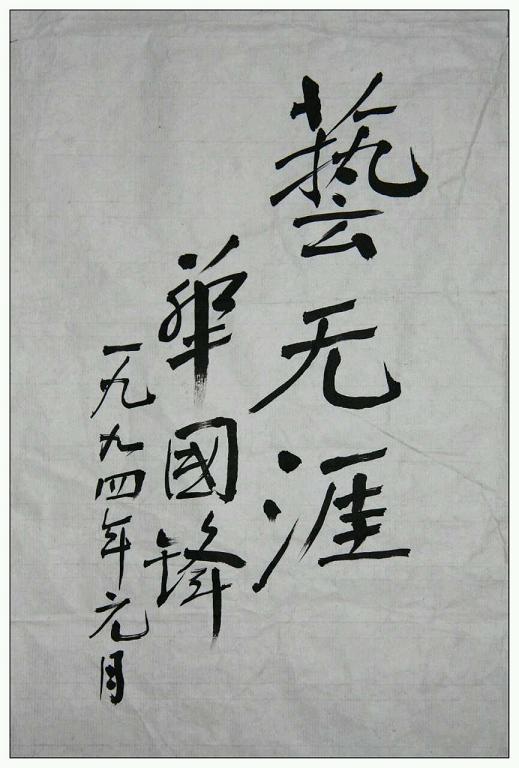 藝无涯
華國鋒
一九九四年元月